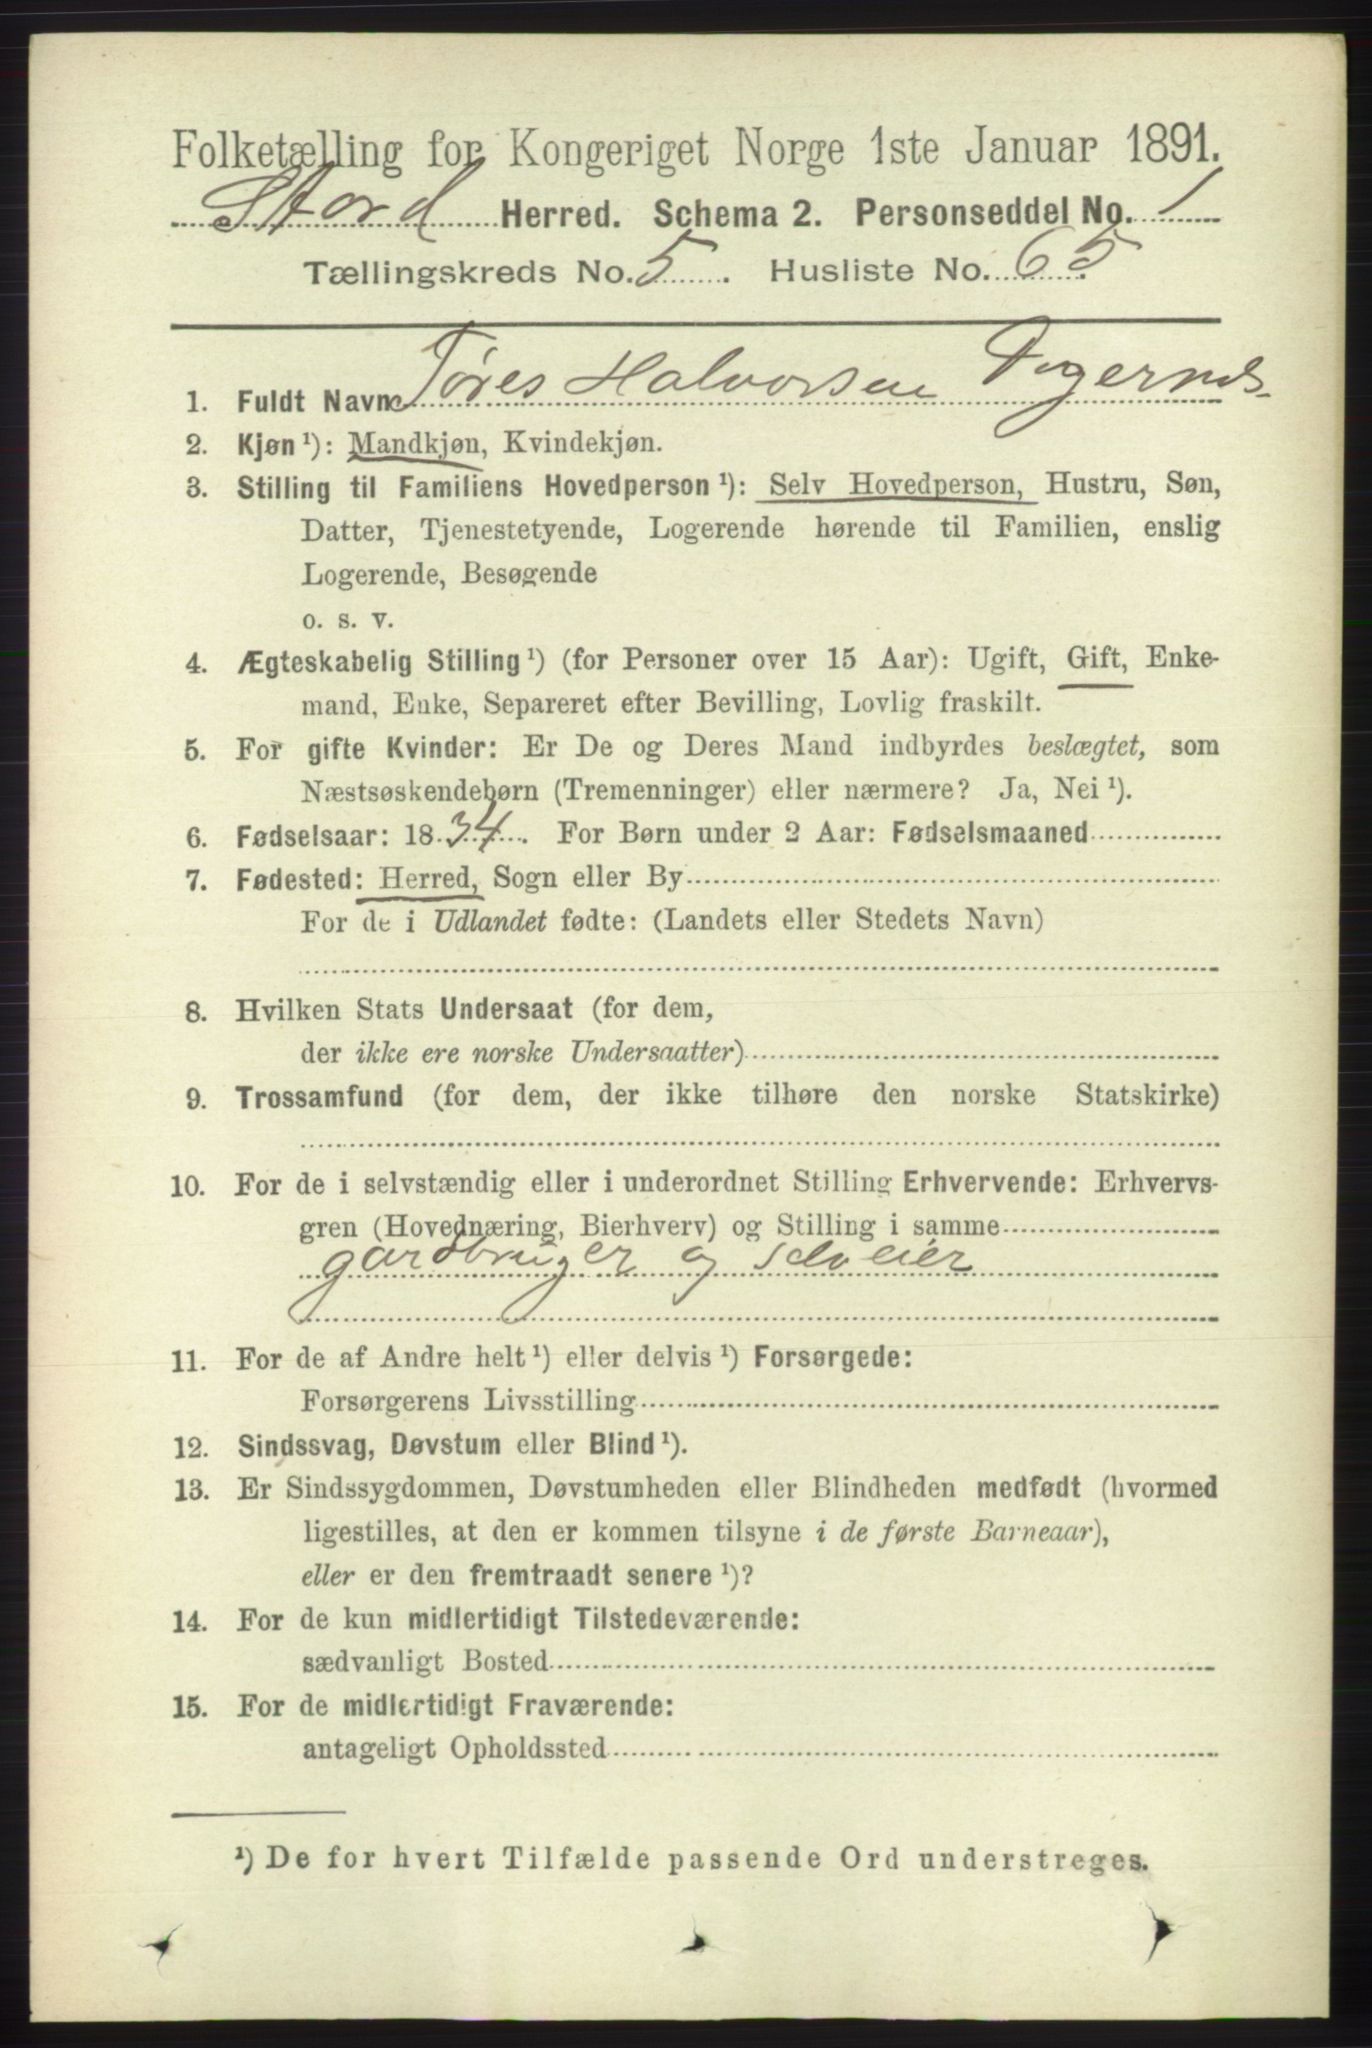 Folketælling for Kongeriget Norge 1ste Januar 1891.
Stord Herred. Schema 2. Personseddel No. 1
Tællingskreds No. 5. Husliste No. 65.
1. Fuldt Navn Tøres Halvorsen Digernes
2. Kjøn ¹): Mandkjøn, Kvindekjøn.
3. Stilling til Familiens Hovedperson ¹): Selv Hovedperson, Hustru, Søn,
Datter, Tjenestetyende, Logerende hørende til Familien, enslig
Logerende, Besøgende
o. s. v.
4. Ægteskabelig Stilling ¹) (for Personer over 15 Aar): Ugift, Gift, Enke-
mand, Enke, Separeret efter Bevilling, Lovlig fraskilt.
5. For gifte Kvinder: Er De og Deres Mand indbyrdes beslægtet, som
Næstsøskendebørn (Tremenninger) eller nærmere? Ja, Nei ¹).
6. Fødselsaar: 1834. For Børn under 2 Aar: Fødselsmaaned
7. Fødested: Herred, Sogn eller By
For de i Udlandet fødte: (Landets eller Stedets Navn)
8. Hvilken Stats Undersaat (for dem,
der ikke ere norske Undersaatter)
9. Trossamfund (for dem, der ikke tilhøre den norske Statskirke)
10. For de i selvstændig eller i underordnet Stilling Erhvervende: Erhvervs-
gren (Hovednæring, Bierhverv) og Stilling i samme
gardbruger og selveier
11. For de af Andre helt ¹) eller delvis ¹) Forsørgede:
Forsørgerens Livsstilling
12. Sindssvag, Døvstum eller Blind ¹).
13. Er Sindssygdommen, Døvstumheden eller Blindheden medfødt (hvormed
ligestilles, at den er kommen tilsyne i de første Barneaar),
eller er den fremtraadt senere ¹)?
14. For de kun midlertidigt Tilstedeværende:
sædvanligt Bosted
15. For de midlertidigt Fraværende:
antageligt Opholdssted
¹) De for hvert Tilfælde passende Ord understreges.